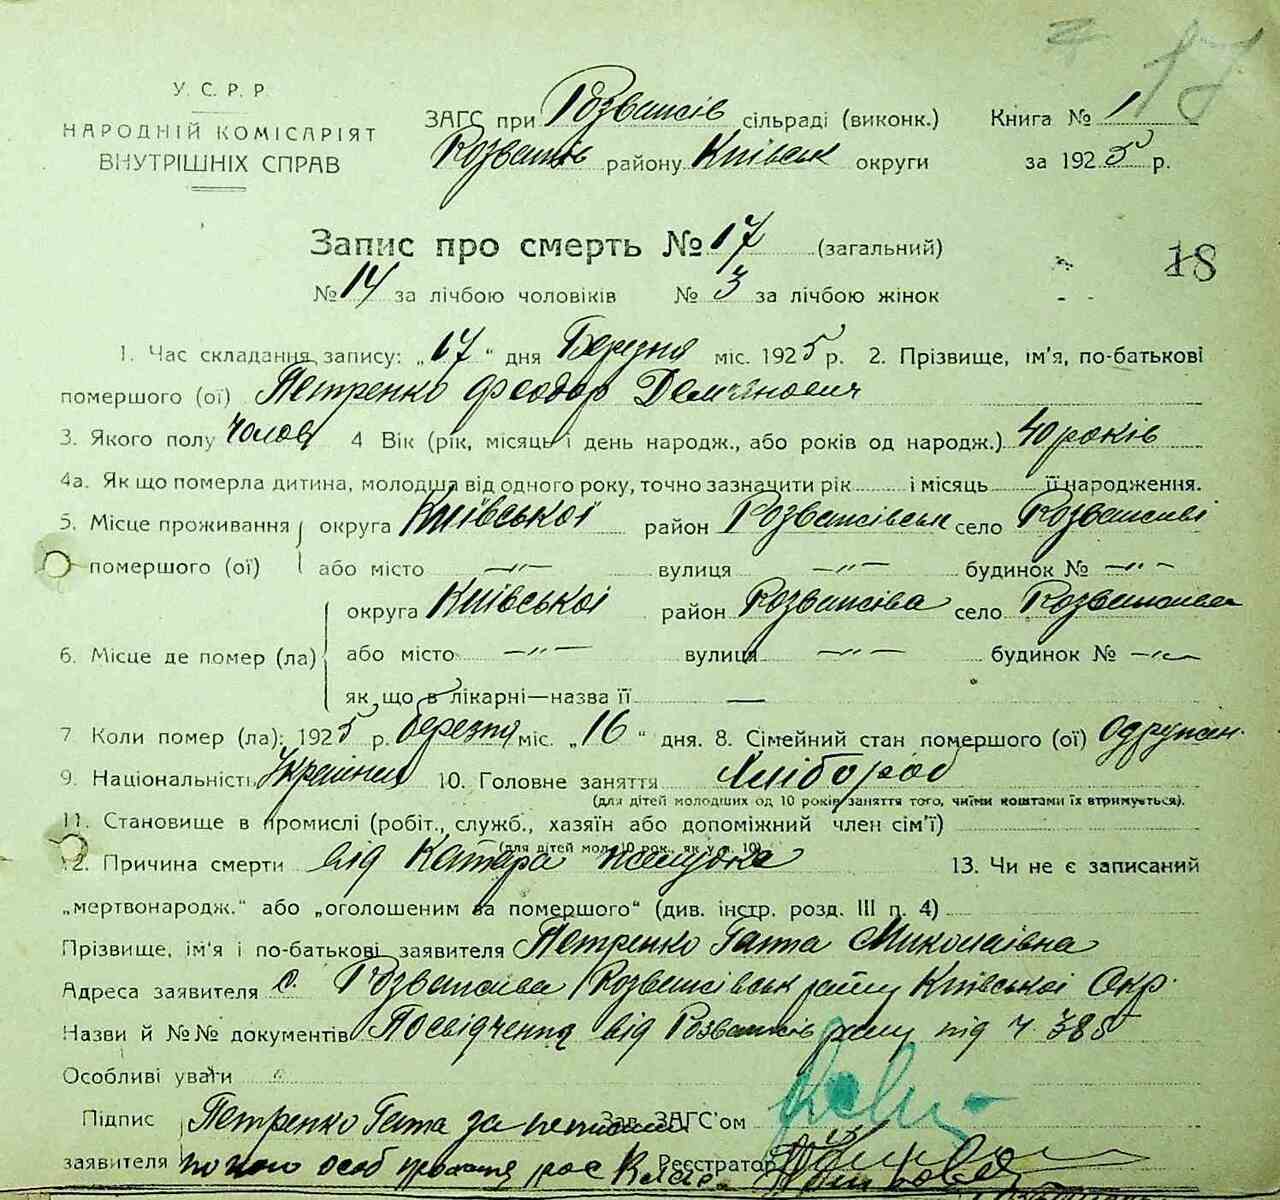 17
У. С. Р. Р.
НАРОДНІЙ КОМІСАРІЯТ
ВНУТРІШНІХ СПРАВ
ЗАГС при Розважів сільраді (виконк.)
Розважів району Київськ округи
Книга № 1
за 1925 р.
Запис про смерть № 17 (загальний)
18
№ 14 за лічбою чоловіків № 3 за лічбою жінок
1. Час складання запису: „17“ дня Березня міс. 1925 р. 2. Прізвище, ім'я, по-батькові
помершого (ої) Петренко Феодор Дем'янович
3. Якого полу Чолов 4 Вік (рік, місяць і день народж., або років од народж.) 40 років
4а. Як що померла дитина, молодша від одного року, точно зазначити рік і місяць її народження.
5. Місце проживання округа Київської район Розважівськ село Розважеві
помершого (ої) або місто —"— вулиця —"— будинок № —"—
округа Київської район Розважіва село Розважіва
6. Місце де помер (ла) або місто —"— вулиця —"— будинок № —"—
як що в лікарні—назва її —
7 Коли помер (ла): 1925 р. березня міс. „16“ дня. 8. Сімейний стан помершого (ої) Одружен.
9. Національність Українец 10. Головне заняття Хлібороб
(для дітей молодших од 10 років заняття того, чиїми коштами їх втримується).
11. Становище в промислі (робіт., служб., хазяїн або допоміжний член сім'ї)
(для дітей мол. 10 рок., як у п. 10)
12. Причина смерти від Катара желудка 13. Чи не є записаний
„мертвонародж.“ або „оголошеним за помершого“ (див. інстр. розд. III п. 4)
Прізвище, ім'я і по-батькові заявителя Петренко Гапта Миколаівна
Адреса заявителя с. Розважіва Розважівськ району Київської Окр.
Назви й №№ документів Посвідчення від Розважів під ч 385
Особливі уваги
Підпис Петренко Гапта за Зав. ЗАГС'ом
заявителя особ Реєстратор